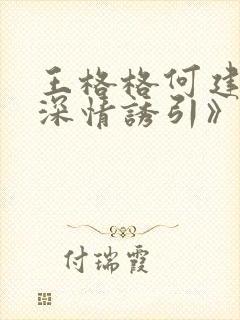 王格格何建
深情誘引》
付瑞霞